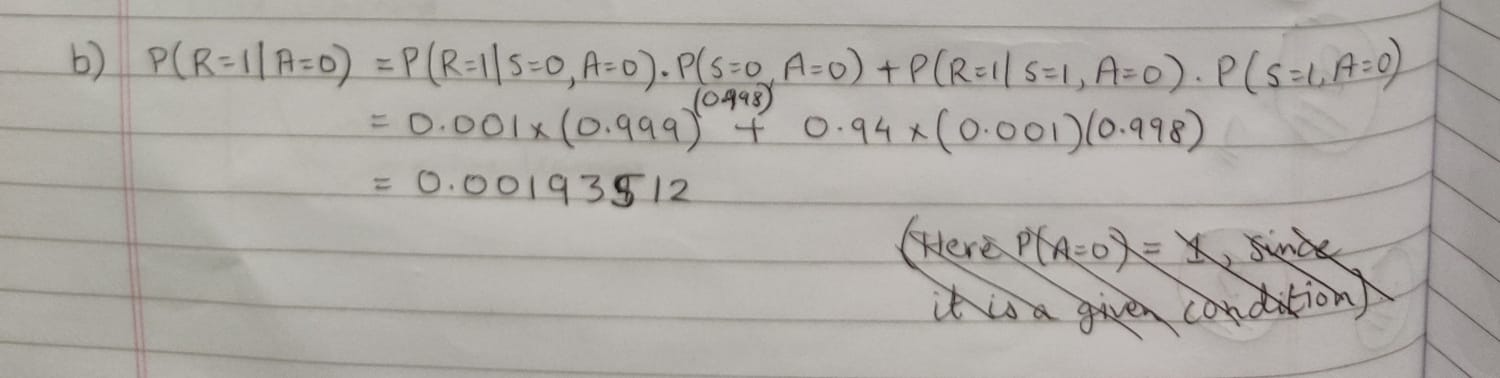 b) P(R=1|A=0) = P(R=1|S=0, A=0). P(S=0, A=0) + P(R=1|S=1, A=0). P(S=1, A=0)
= 0.001 x (0.999) (0.998) + 0.94 x (0.001)(0.998)
= 0.00193512
(Here P(A=0) = 1, since
it is a given condition)